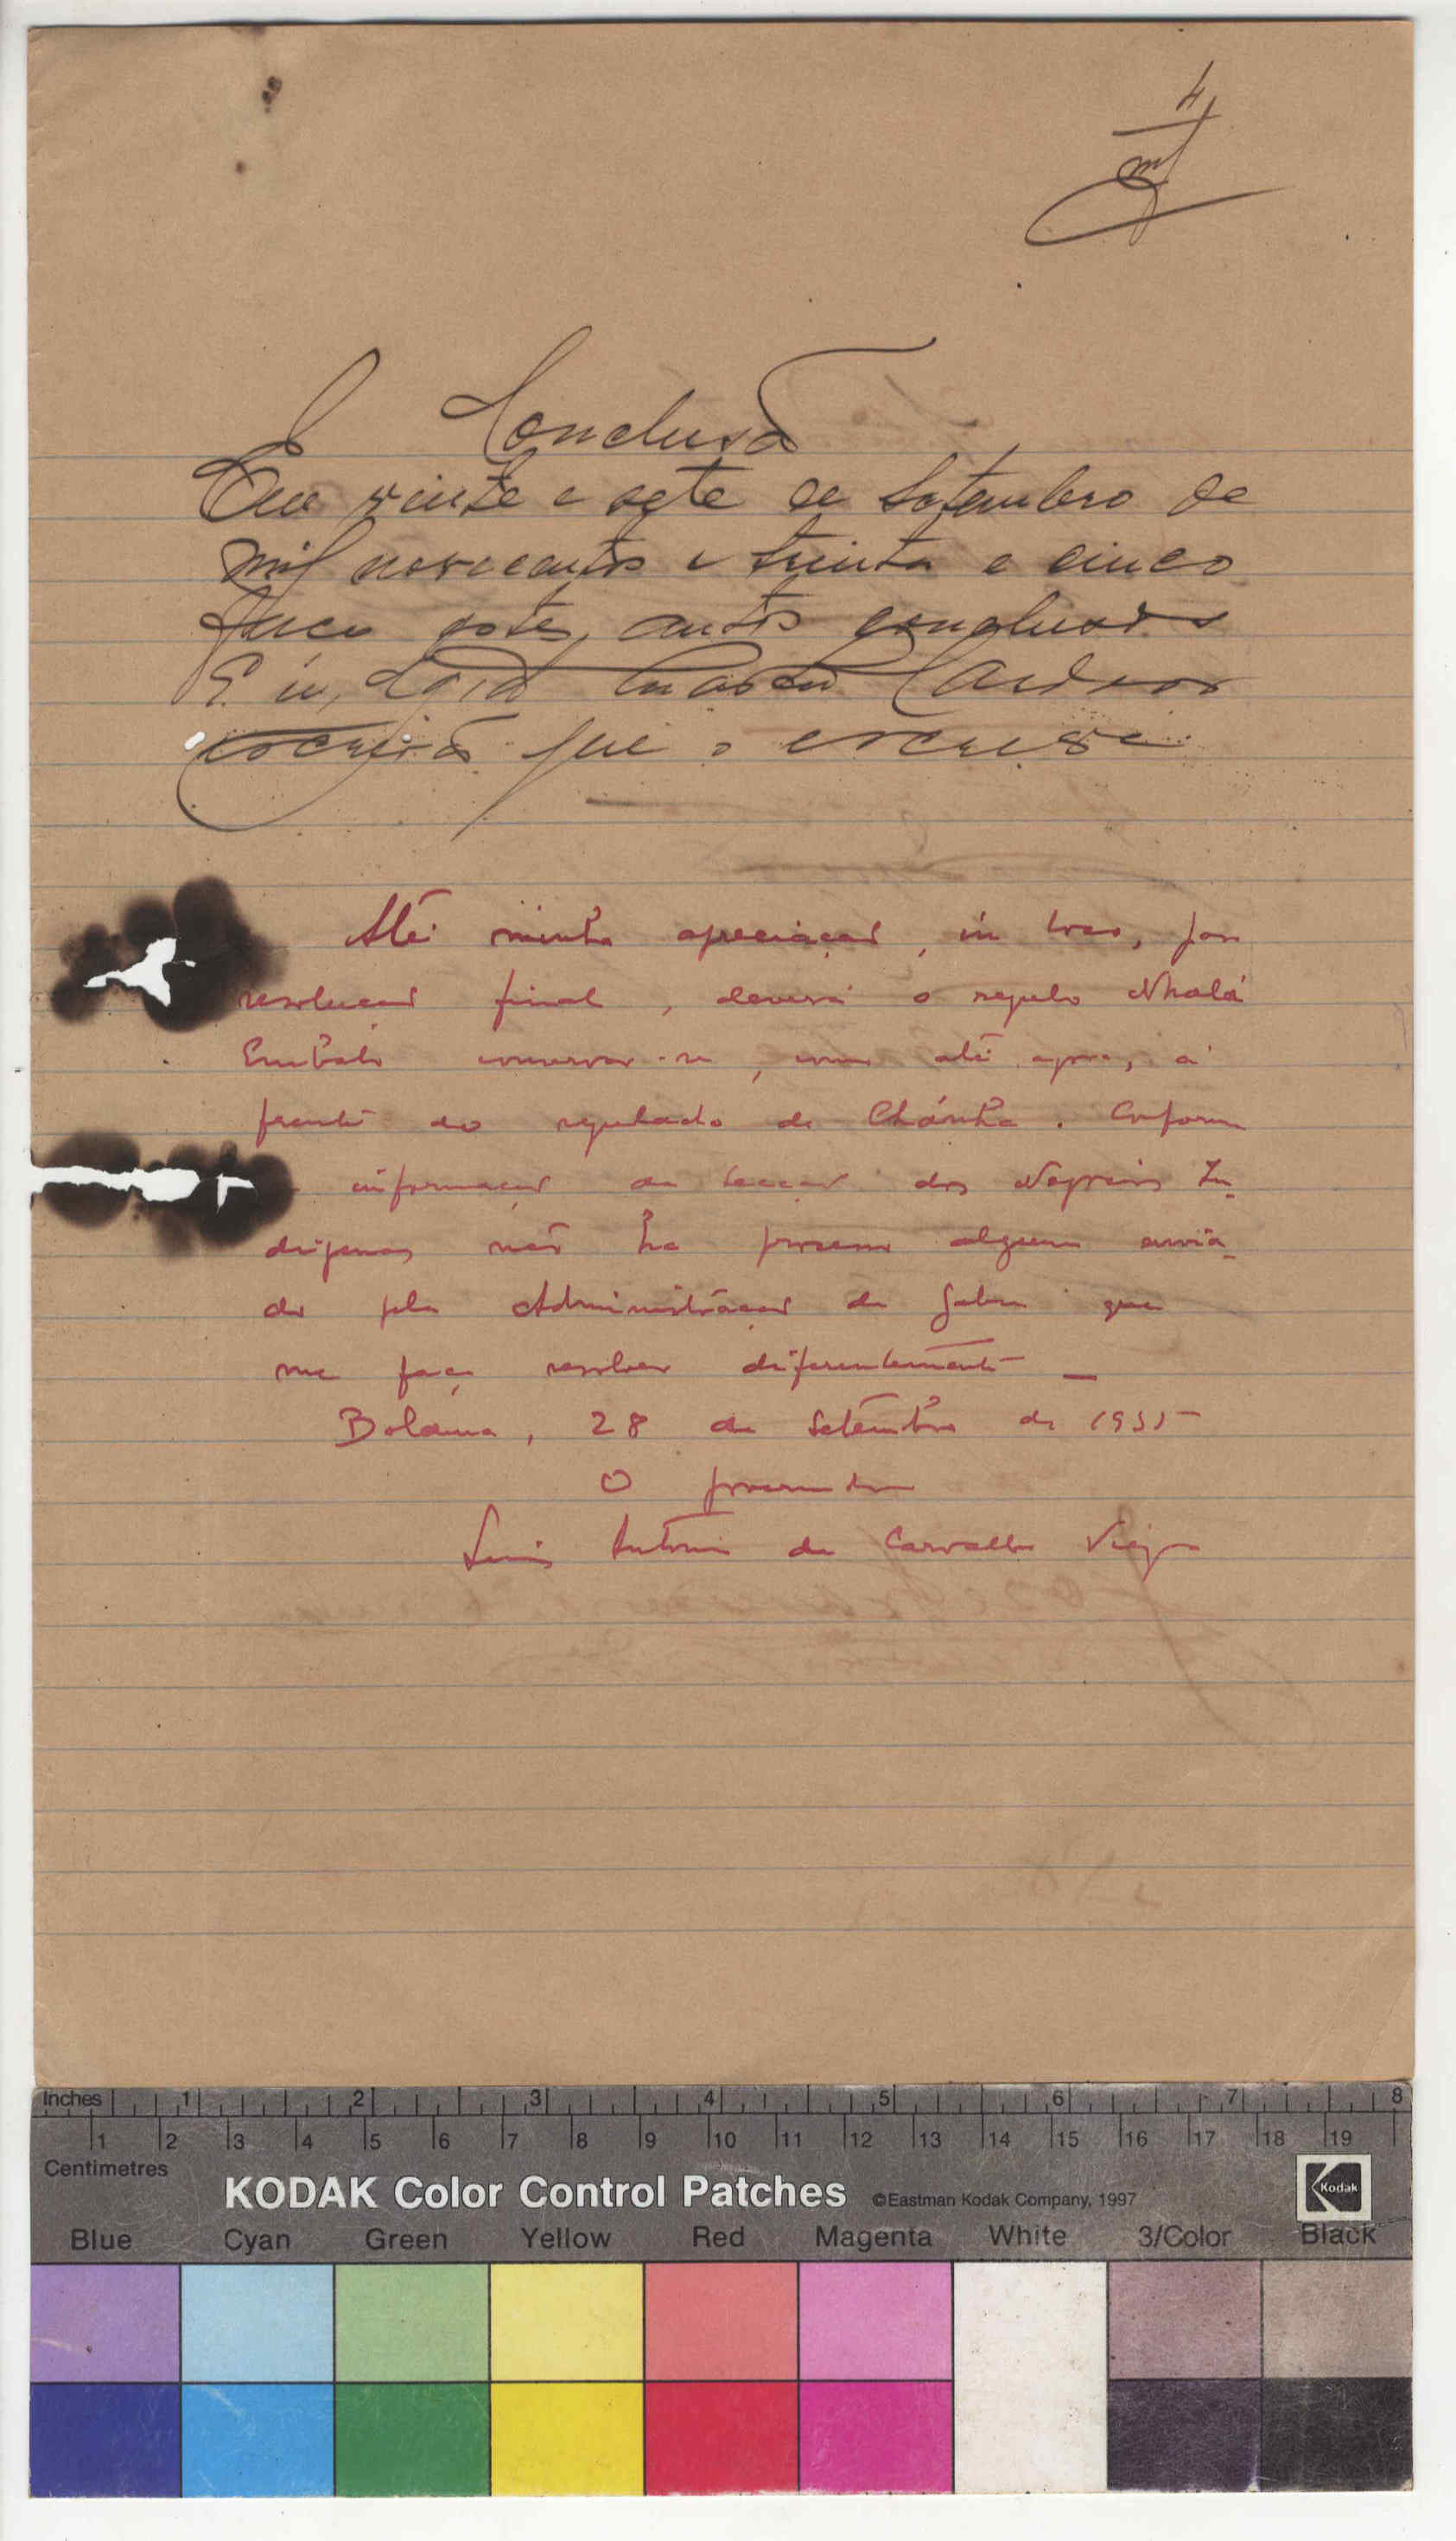 4
Conclusão
Aos vinte e sete de Setembro de
mil novecentos e trinta e cinco
faço estes autos conclusos
E eu, Cardoso
escrivão que o escrevi.
Até minha apreciação, in loco, para
resolução final, deverá o regulo Nhalá
Embaló conservar-se, como até agora, á
frente do regulado de Chánha. Conforme
informação da Secção dos Negocios In-
digenas não ha processo algum envia-
do pela Administração de Gabu que
me faça resolver diferentemente _
Bolama, 28 de Setembro de 1935
O governador
Luis Antonio de Carvalho Viegas
Inches 1 2 3 4 5 6 7 8
1 2 3 4 5 6 7 8 9 10 11 12 13 14 15 16 17 18 19
Centimetres
KODAK Color Control Patches ©Eastman Kodak Company, 1997 Kodak
Blue Cyan Green Yellow Red Magenta White 3/Color Black